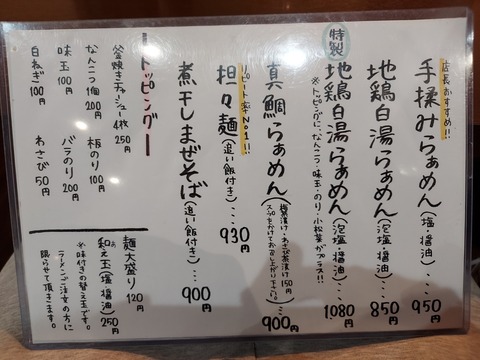 店長おすすめ!!
手揉みらぁめん(塩・醤油)・・・950円
地鶏白湯らぁめん(泡塩・醤油)・・・850円
特製 地鶏白湯らぁめん(泡塩・醤油)・・・1080円
※トッピングに、なんこつ・味玉・のり・小松菜がプラス!!
真鯛らぁめん・・・900円
梅茶漬け・わさび茶漬け150円
スープをかけてお召し上がり下さい。
リピート率No1!!
担々麺(追い飯付き)・・・930円
煮干しまぜそば(追い飯付き)・・・900円
トッピング
釜焼きチャーシュー4枚 250円
なんこつ1個 200円
板のり 100円
味玉 100円
バラのり 200円
白ねぎ 100円
わさび 50円
麺大盛り 120円
和え玉(塩・醤油) 250円
※味付きの替え玉です。
ラーメンご注文の方に
限らせて頂きます。